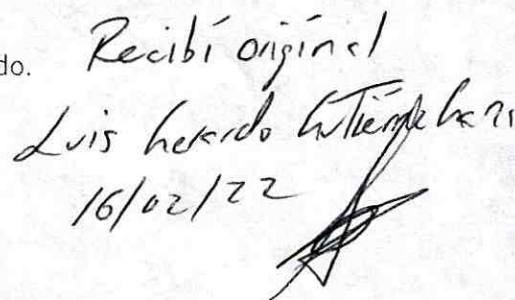 do.
Recibí original
Luis Gerardo Gutiérrez
16/02/22